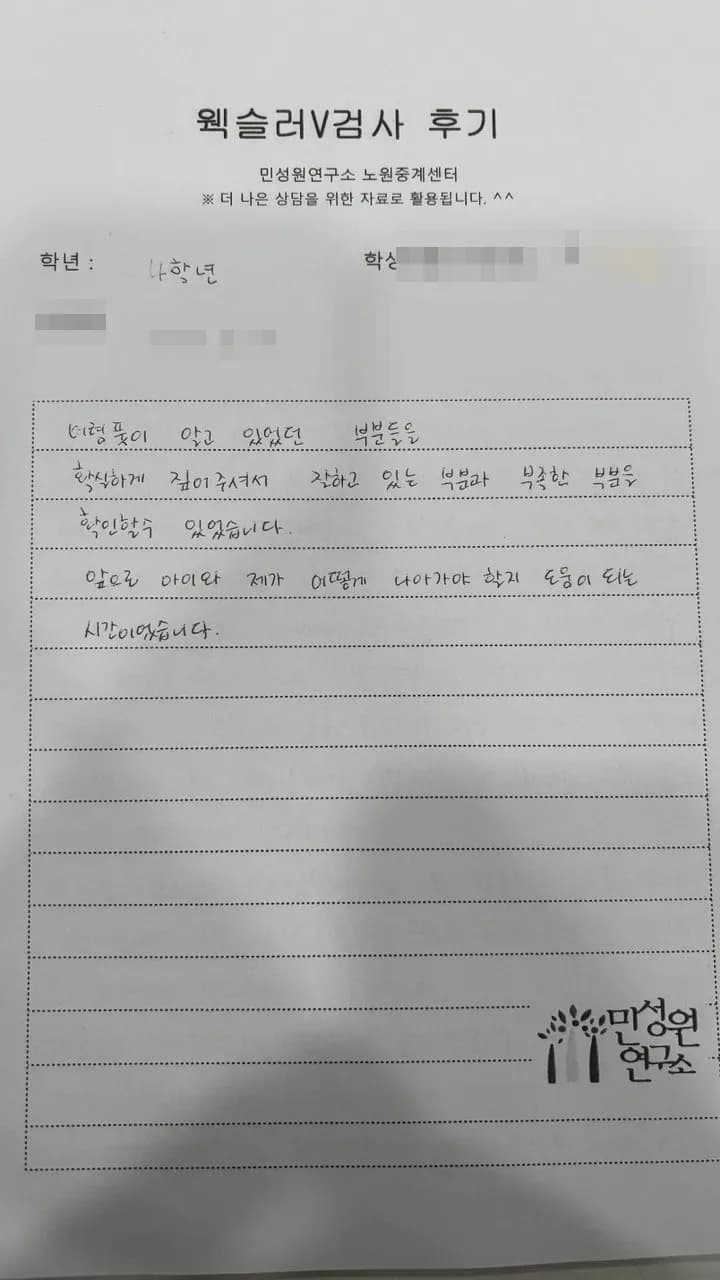 웩슬러V검사 후기
민성원연구소 노원중계센터
※ 더 나은 상담을 위한 자료로 활용됩니다. ^^
학년 : 4학년 학생
어렴풋이 알고 있었던 부분들을
확실하게 짚어주셔서 잘하고 있는 부분과 부족한 부분을
확인할수 있었습니다.
앞으로 아이와 제가 어떻게 나아가야 할지 도움이 되는
시간이었습니다.
민성원
연구소